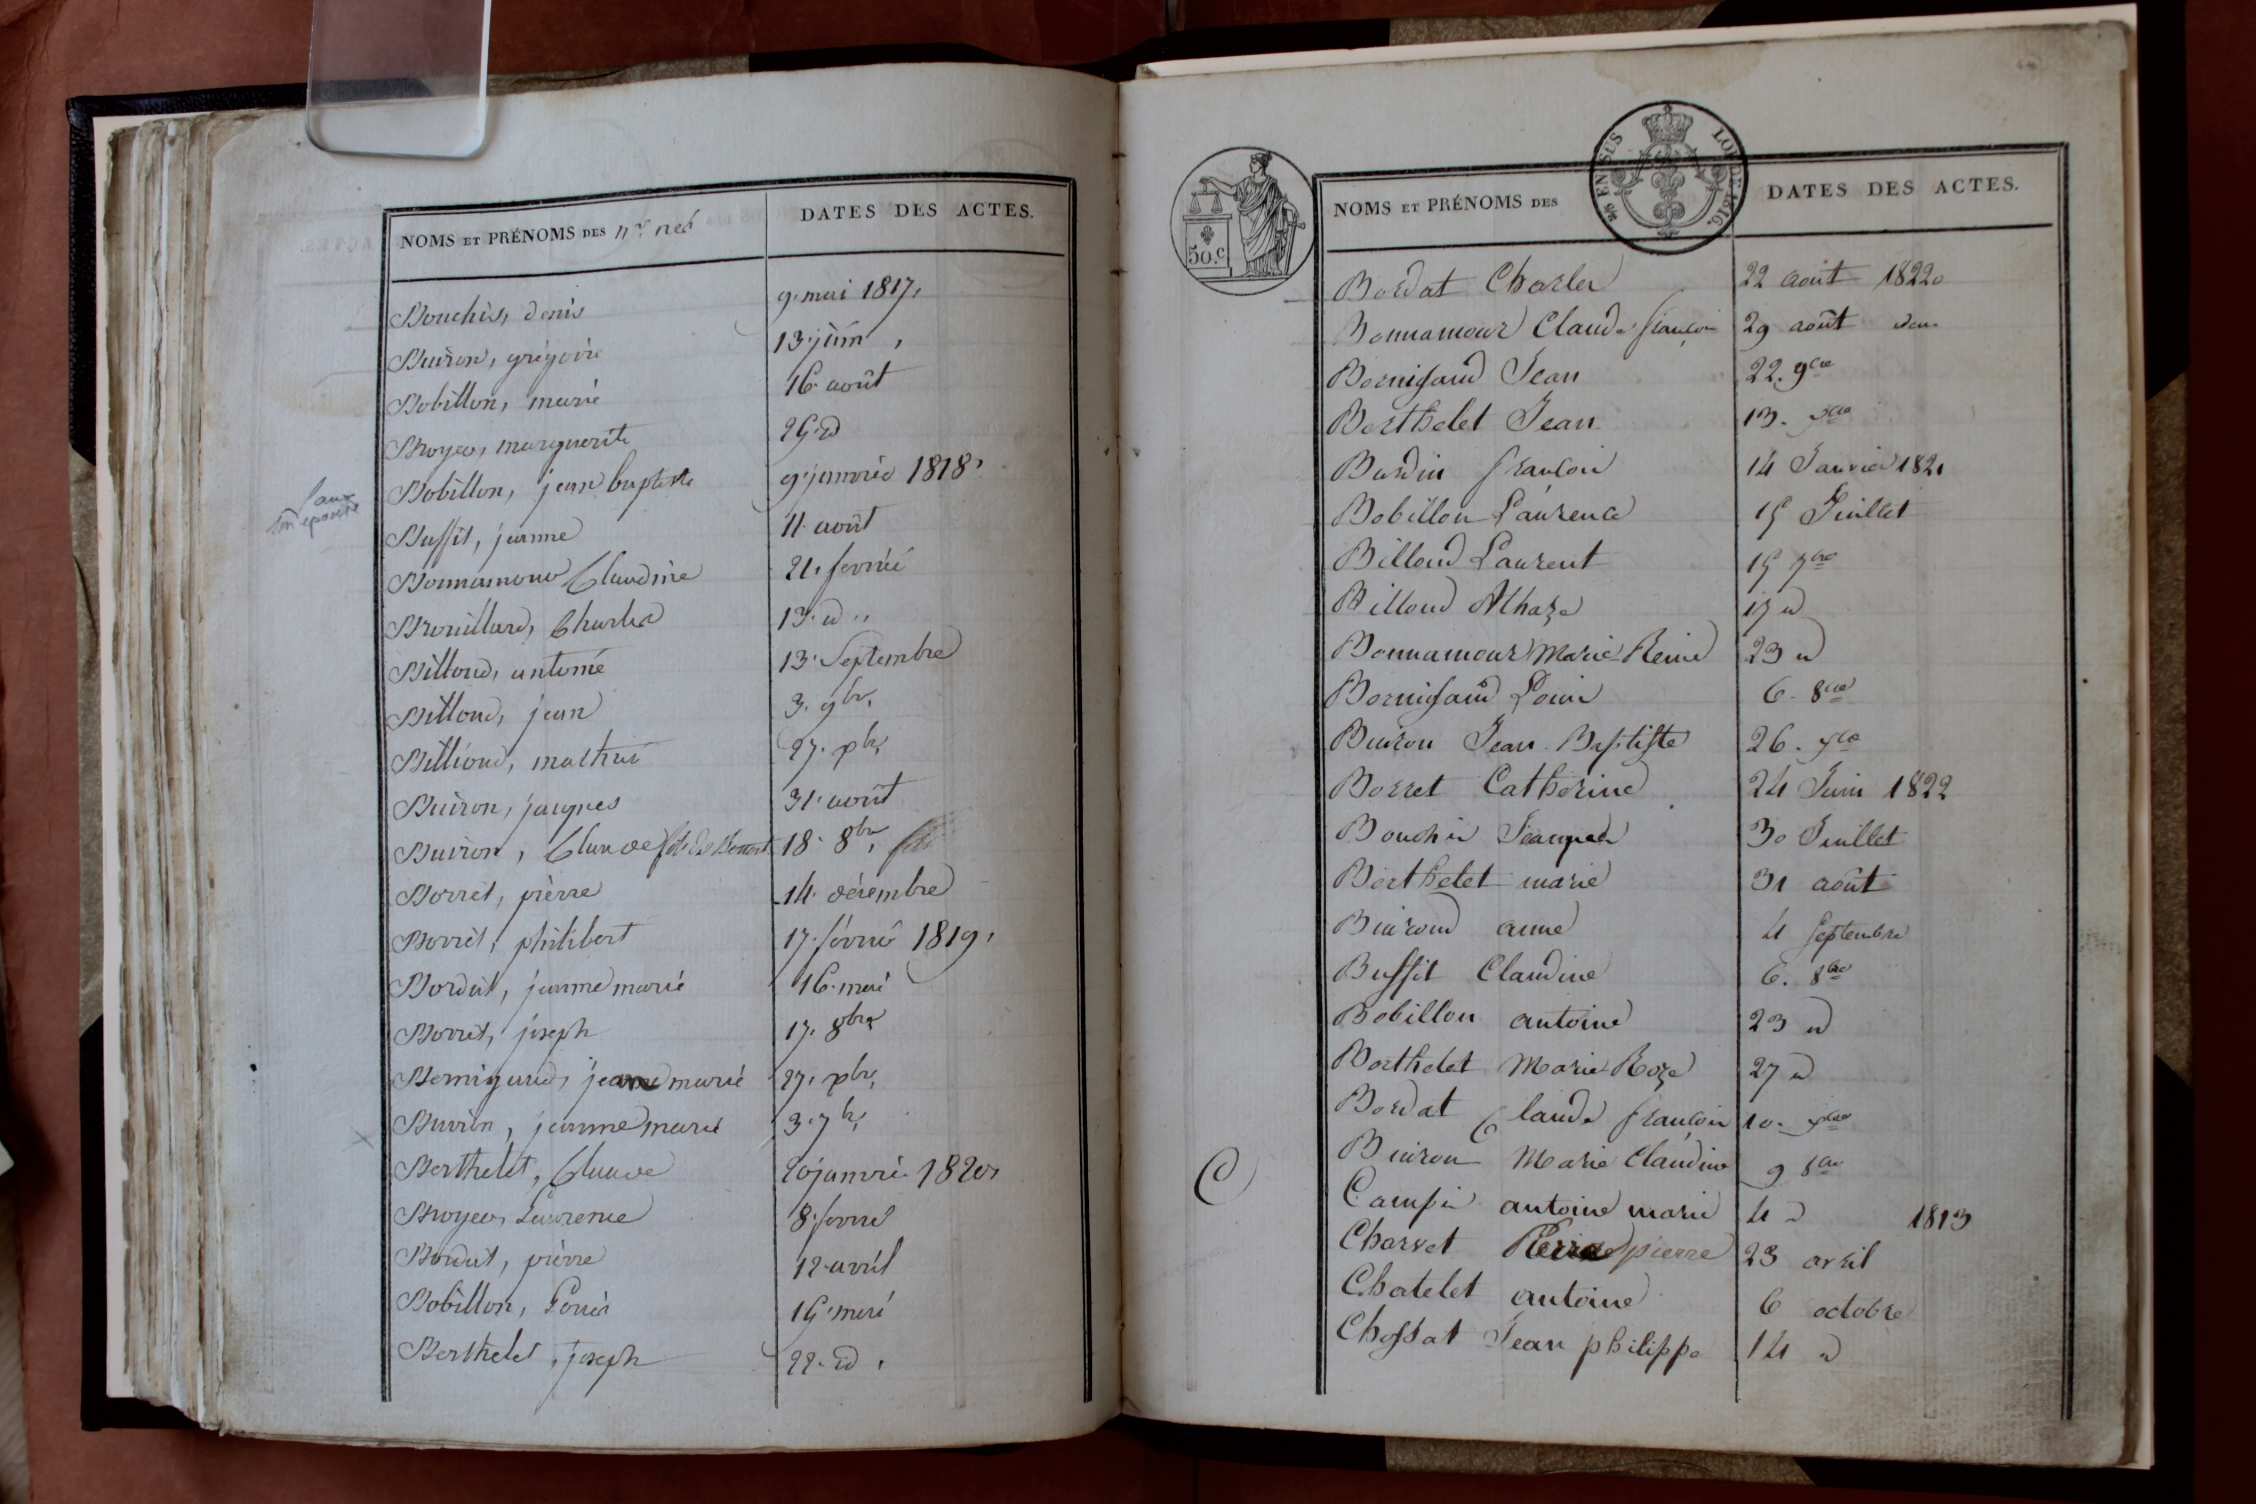 NOMS ET PRÉNOMS DES nx nés DATES DES ACTES.
Bouchis, denis 9. mai 1817,
Buiron, grégoire 13. juin,
Bobillon, marie 16. août
Broyer, marguerite 29. id
Bobillon, jean baptiste 9. janvier 1818,
Buffit, jeanne 11. août
Bonnamour Claudine 21. février
Brouillard, Charles 13. d
Billoud, antoine 13. Septembre
Billoud, jean 3. 9br,
Billioud, mathieu 27. xbr,
Buiron, jacques 31. août
Buiron, Claude fils de Benoit 18. 8br,
Borret, pierre 14. décembre
Borret, philibert 17. février 1819,
Bordat, jeanne marie 16. mai
Borret, joseph 17. 8bre
Bernigaud, jeanne marie 27. xbr,
Buiron, jeanne marie 3. 7br,
Berthelet, Claude 20 janvier 1820,
Broyer, Laurence 8. février
Bordat, pierre 12. avril
Bobillon, Louis 19. mai
Berthelet, joseph 22. id,
50.C
LOI DE 1816.
NOMS ET PRÉNOMS DES DATES DES ACTES.
Bordat Charles 22 août 1820
Bonnamour Claude françois 29 août
Bernigaud Jean 22. 9bre
Berthelet Jean 13. xbre
Bardin françois 14 Janvier 1821
Bobillon Laurence 15 Juillet
Billoud Laurent 15 7bre
Billoud Alhaze 17 d
Bonnamour Marie Reine 23 d
Bernigaud Louis 6. 8bre
Buiron Jean Baptiste 26. xbre
Borret Catherine 24 Juin 1822
Bouchis Jacques 30 Juillet
Berthelet marie 31 août
Buiron anne 4 Septembre
Buffit Claudine 6. 8bre
Bobillon antoine 23 d
Berthelet Marie Roze 27 d
Bordat Claude françois 10. xbre
Buiron Marie Claudine 9 8bre
C
Campin antoine marie 4 d 1813
Charvet pierre 23 avril
Chatelet antoine 6 octobre
Chossat Jean philippe 14 d